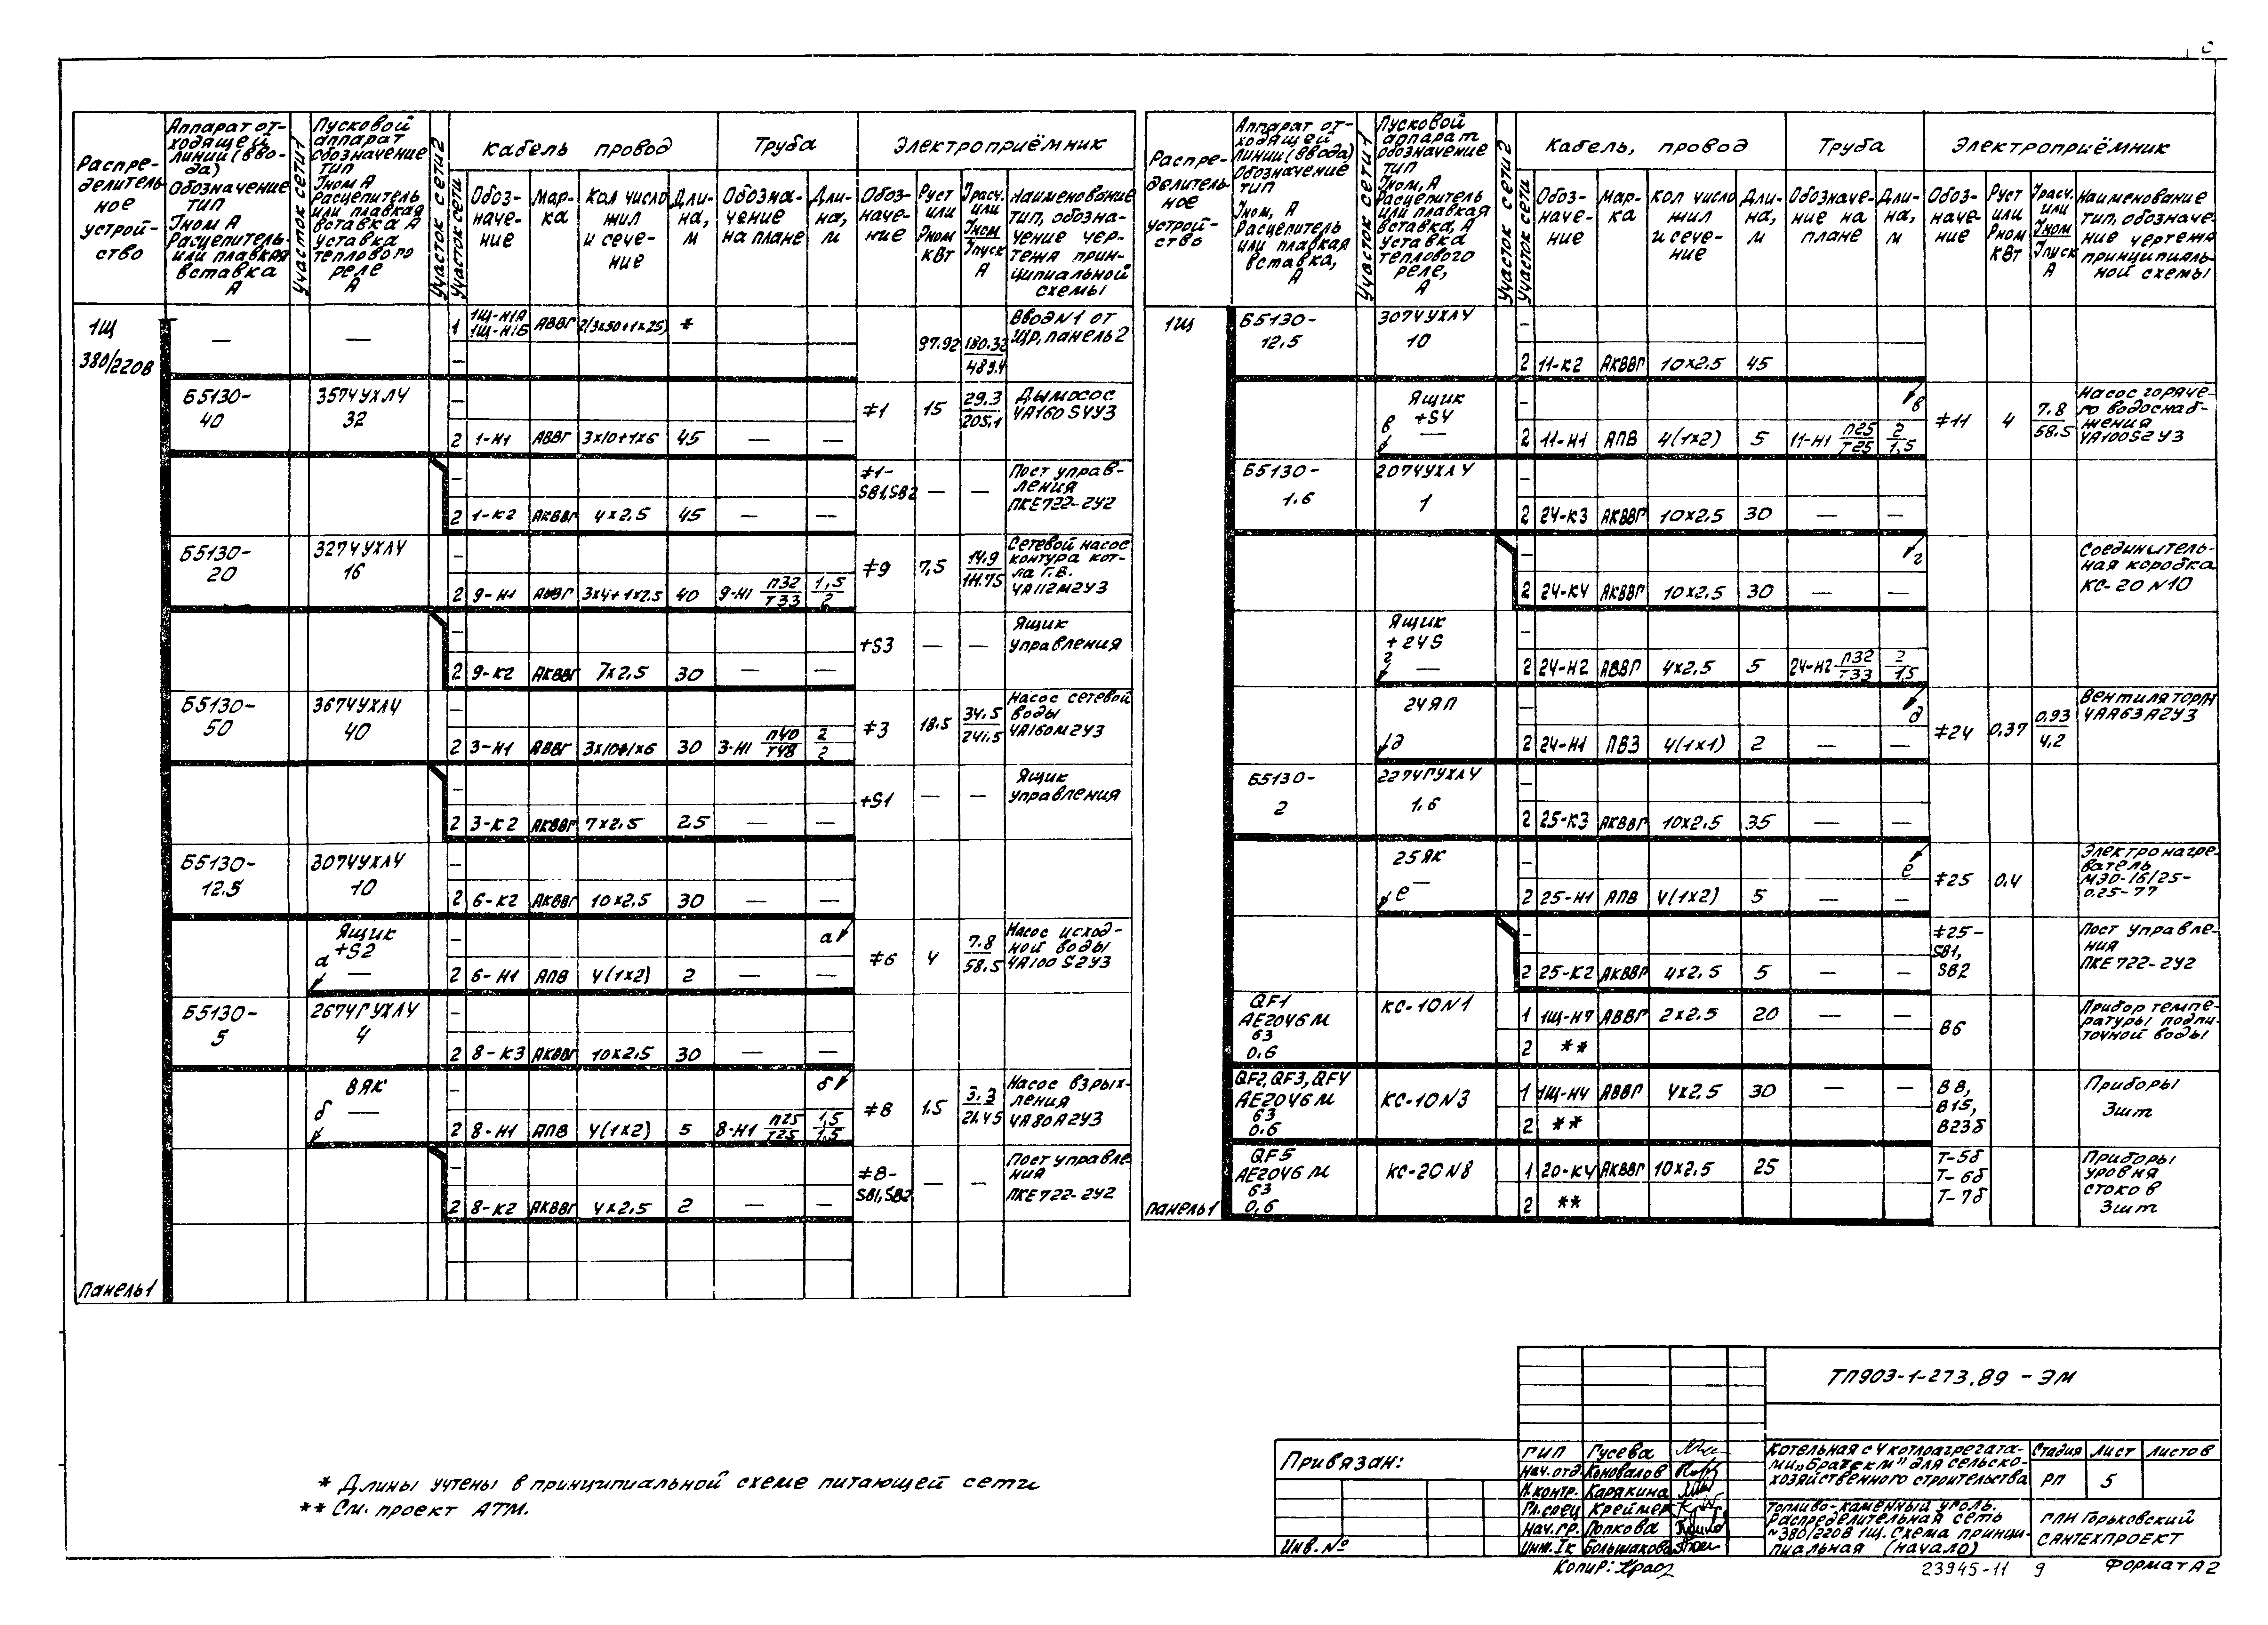 Распре-
делитель-
ное
устрой-
ство
Аппарат от-
ходящей
линии (вво-
да)
Обозначение
тип
Iном А
Расцепитель
или плавкая
вставка
А
Участок сети1
Пусковой
аппарат
обозначение
тип
Iном А
Расцепитель
или плавкая
вставка А
уставка
теплового
реле
А
Участок сети2
Участок сети
Кабель провод
Обоз-
наче-
ние
Мар-
ка
Кол число
жил
и сече-
ние
Дли-
на,
м
Труба
Обозна-
чение
на плане
Дли-
на,
м
Электроприёмник
Обоз-
наче-
ние
Руст
или
Рном
кВт
Iрасч.
или
Iном
Iпуск
А
Наименование
тип, обозна-
чение чер-
тежа прин-
ципиальной
схемы
1Щ
380/220В
— — 1 1Щ-Н1А
1Щ-Н1Б АВВГ 2(3х50+1х25) *
97.92 180.32
489.4
Ввод N1 от
ЩР, панель 2
—
Б5130-
40
3574УХЛ4
32
—
2 1-Н1 АВВГ 3х10+1х6 45 — —
≠1 15 29.3
205.1
Дымосос
4А160S4У3
—
2 1-К2 АКВВГ 4х2,5 45 — —
≠1-
SB1,SB2 — —
Пост управ-
ления
ПКЕ722-2У2
Б5130-
20
3274УХЛ4
16
—
2 9-Н1 АВВГ 3х4+1х2.5 40 9-Н1 П32
Т33 1,5
2
≠9 7,5 14.9
111.75
Сетевой насос
контура кот-
ла Г.В.
4А112М2У3
—
2 9-К2 АКВВГ 7х2.5 30 — —
+S3 — —
Ящик
управления
Б5130-
50
3674УХЛ4
40
—
2 3-Н1 АВВГ 3х10+1х6 30 3-Н1 П40
Т48 2
2
≠3 18.5 34.5
241.5
Насос сетевой
воды
4А160М2У3
—
2 3-К2 АКВВГ 7х2.5 25 — —
+S1 — —
Ящик
управления
Б5130-
12.5
3074УХЛ4
10
—
2 6-К2 АКВВГ 10х2,5 30 — —
Ящик
+S2
а —
— а
2 6-Н1 АПВ 4(1х2) 2 — —
≠6 4 7.8
58.5
Насос исход-
ной воды
4А100S2У3
Б5130-
5
2674ГУХЛ4
4
—
2 8-К3 АКВВГ 10х2.5 30 — —
8ЯК
б —
— б
2 8-Н1 АПВ 4(1х2) 5 8-Н1 П25
Т25 1,5
1,5
≠8 1.5 3.3
21.45
Насос взрых-
ления
4А80А2У3
—
2 8-К2 АКВВГ 4х2.5 2 — —
≠8-
SB1,SB2 — —
Пост управле-
ния
ПКЕ722-2У2
Панель1
Распре-
делитель-
ное
устрой-
ство
Аппарат от-
ходящей
линии (ввода)
Обозначение
тип
Iном, А
Расцепитель
или плавкая
вставка,
А
Участок сети1
Пусковой
аппарат
обозначение
тип
Iном, А
Расцепитель
или плавкая
вставка, А
уставка
теплового
реле,
А
Участок сети2
Участок сети
Кабель, провод
Обоз-
наче-
ние
Мар-
ка
Кол число
жил
и сече-
ние
Дли-
на,
м
Труба
Обозначе-
ние на
плане
Дли-
на,
м
Электроприёмник
Обоз-
наче-
ние
Руст
или
Рном
кВт
Iрасч.
или
Iном
Iпуск
А
Наименование
тип, обозначе-
ние чертежа
принципиаль-
ной схемы
1Щ
Б5130-
12.5
3074УХЛ4
10
—
2 11-К2 АКВВГ 10х2.5 45
Ящик
+S4
в —
— в
2 11-Н1 АПВ 4(1х2) 5 11-Н1 П25
Т25 2
1,5
≠11 4 7.8
58.5
Насос горяче-
го водоснаб-
жения
4А100S2У3
Б5130-
1.6
2074УХЛ4
1
—
2 24-К3 АКВВГ 10х2.5 30 — —
— г
2 24-К4 АКВВГ 10х2.5 30 — —
Соединитель-
ная коробка
КС-20 N10
Ящик
+24S
г —
—
2 24-Н2 АВВГ 4х2.5 5 24-Н2 П32
Т33 2
1,5
24ЯП
д
— д
2 24-Н1 ПВ3 4(1х1) 2 — —
≠24 0,37 0,93
4,2
Вентилятор
4АА63А2У3
Б5130-
2
2274ГУХЛ4
1.6
—
2 25-К3 АКВВГ 10х2.5 35 — —
25ЯК
—
е
— е
2 25-Н1 АПВ 4(1х2) 5 — —
≠25 0.4
Электронагре-
ватель
МЭО-16/25-
0.25-77
—
2 25-К2 АКВВГ 4х2.5 5 — —
≠25-
SB1,
SB2
Пост управле-
ния
ПКЕ722-2У2
QF1
АЕ2046М
63
0.6
КС-10N1
1 1Щ-Н7 АВВГ 2х2.5 20 — —
2 **
В6
Прибор темпе-
ратуры подпи-
точной воды
QF2,QF3,QF4
АЕ2046М
63
0.6
КС-10N3
1 1Щ-Н4 АВВГ 4х2.5 30 — —
2 **
В8,
В15,
В23б
Приборы
3шт
QF5
АЕ2046М
63
0,6
КС-20N8
1 20-К4 АКВВГ 10х2.5 25
2 **
Т-5б
Т-6б
Т-7б
Приборы
уровня
стоков
3шт
Панель1
* Длины учтены в принципиальной схеме питающей сети
** См. проект АТМ.
Привязан:
Инв.№
ГИП Гусева
Нач.отд. Коновалов
Н.контр. Карякина
Гл.спец Креймер
Нач.гр. Попкова
Инж.Iк Большакова
ТП903-1-273.89 -ЭМ
Котельная с 4 котлоагрегата-
ми „Братск М" для сельско-
хозяйственного строительства
Стадия Лист Листов
РП 5
Топливо-каменный уголь.
Распределительная сеть
~380/220В 1Щ. Схема принци-
пиальная (начало)
ГПИ Горьковский
САНТЕХПРОЕКТ
Копир:
23945-11 9
Формат А2